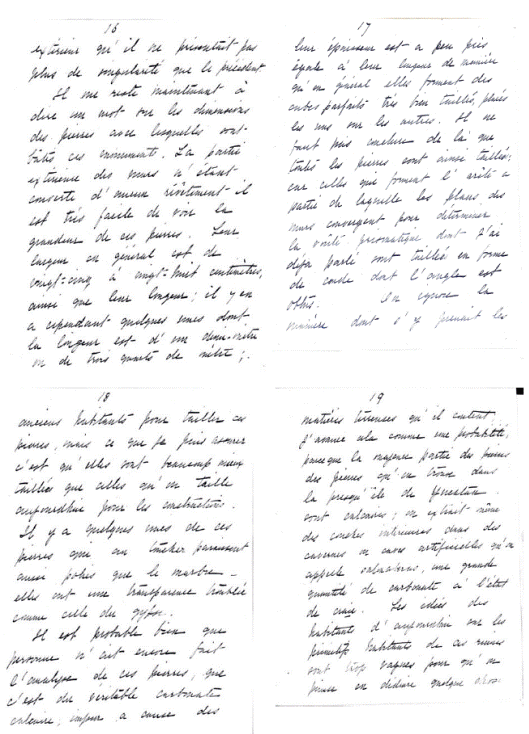 16
extérieur qu'il ne présentait pas
plus de singularité que le précédent
Il me reste maintenant à
dire un mot sur les dimensions
des pierres avec lesquelles sont
bâtis ces monuments. La partie
extérieure des murs n'étant
couverte d'aucun revêtement il
est très facile de voir la
grandeur de ces pierres. Leur
largeur en général est de
vingt-cinq à vingt-huit centimètres,
ainsi que leur longueur; il y en
a cependant quelques unes dont
la longueur est d'un demi-mètre
ou de trois quarts de mètre;
17
leur épaisseur est a peu près
égale à leur longueur de manière
qu'en général elles forment des
cubes parfaits très bien taillés, placés
les uns sur les autres. Il ne
faut pas conclure de là que
toutes les pierres sont aussi taillées;
car celles que forment l'arête a
partir de laquelle les plans des
murs convergent pour déterminer
la voûte prismatique dont j'ai
déja parlé sont taillées en forme
de coude dont l'angle est
obtus. On ignore la
manière dont s'y prenait les
18
anciens habitants pour tailler ces
pierres, mais ce que je puis assurer
c'est qu'elles sont beaucoup mieux
taillées que celles qu'on taille
aujourd'hui pour les constructions.
Il y a quelques unes de ces
pierres que au toucher paraissent
aussi polies que le marbre
elles ont une transparence troublée
comme celle du gypse.
Il est probable bien que
personne n'ait encore fait
l'analyse de ces pierres, que
c'est du véritable carbonate
calcaire, impur a cause des
19
matières terreuses qu'il contient,
j'avance cela comme une probabilité,
parceque la majeure partie des
des pierres qu'on trouve dans
la presqu'île de Yucatan
sont calcaires; on extrait même
des couches intérieures dans des
cavernes ou caves artificielles qu'on
appelle une grande
quantité de carbonate à l'état
de craie. Les idées des
habitants d'aujourdhui sur les
primitifs habitants de ces ruines
sont trop vagues pour qu'on
puisse en déduire quelque chose